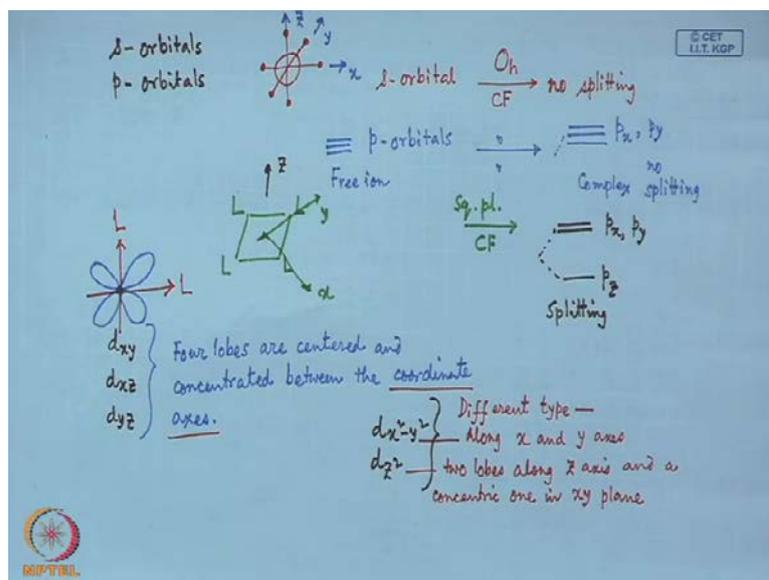 © CET
I.I.T. KGP
s-orbitals
p-orbitals
z
y
x
s-orbital Oh CF no splitting
p-orbitals " "
Free ion
px, py
Complex no splitting
z
L L y
L L
x
Sq. pl.
CF
px, py
pz
Splitting
L
L
dxy
dxz
dyz
Four lobes are centered and
concentrated between the coordinate
axes.
Different type —
dx²-y² — Along x and y axes
dz² — two lobes along z axis and a
concentric one in xy plane
NPTEL